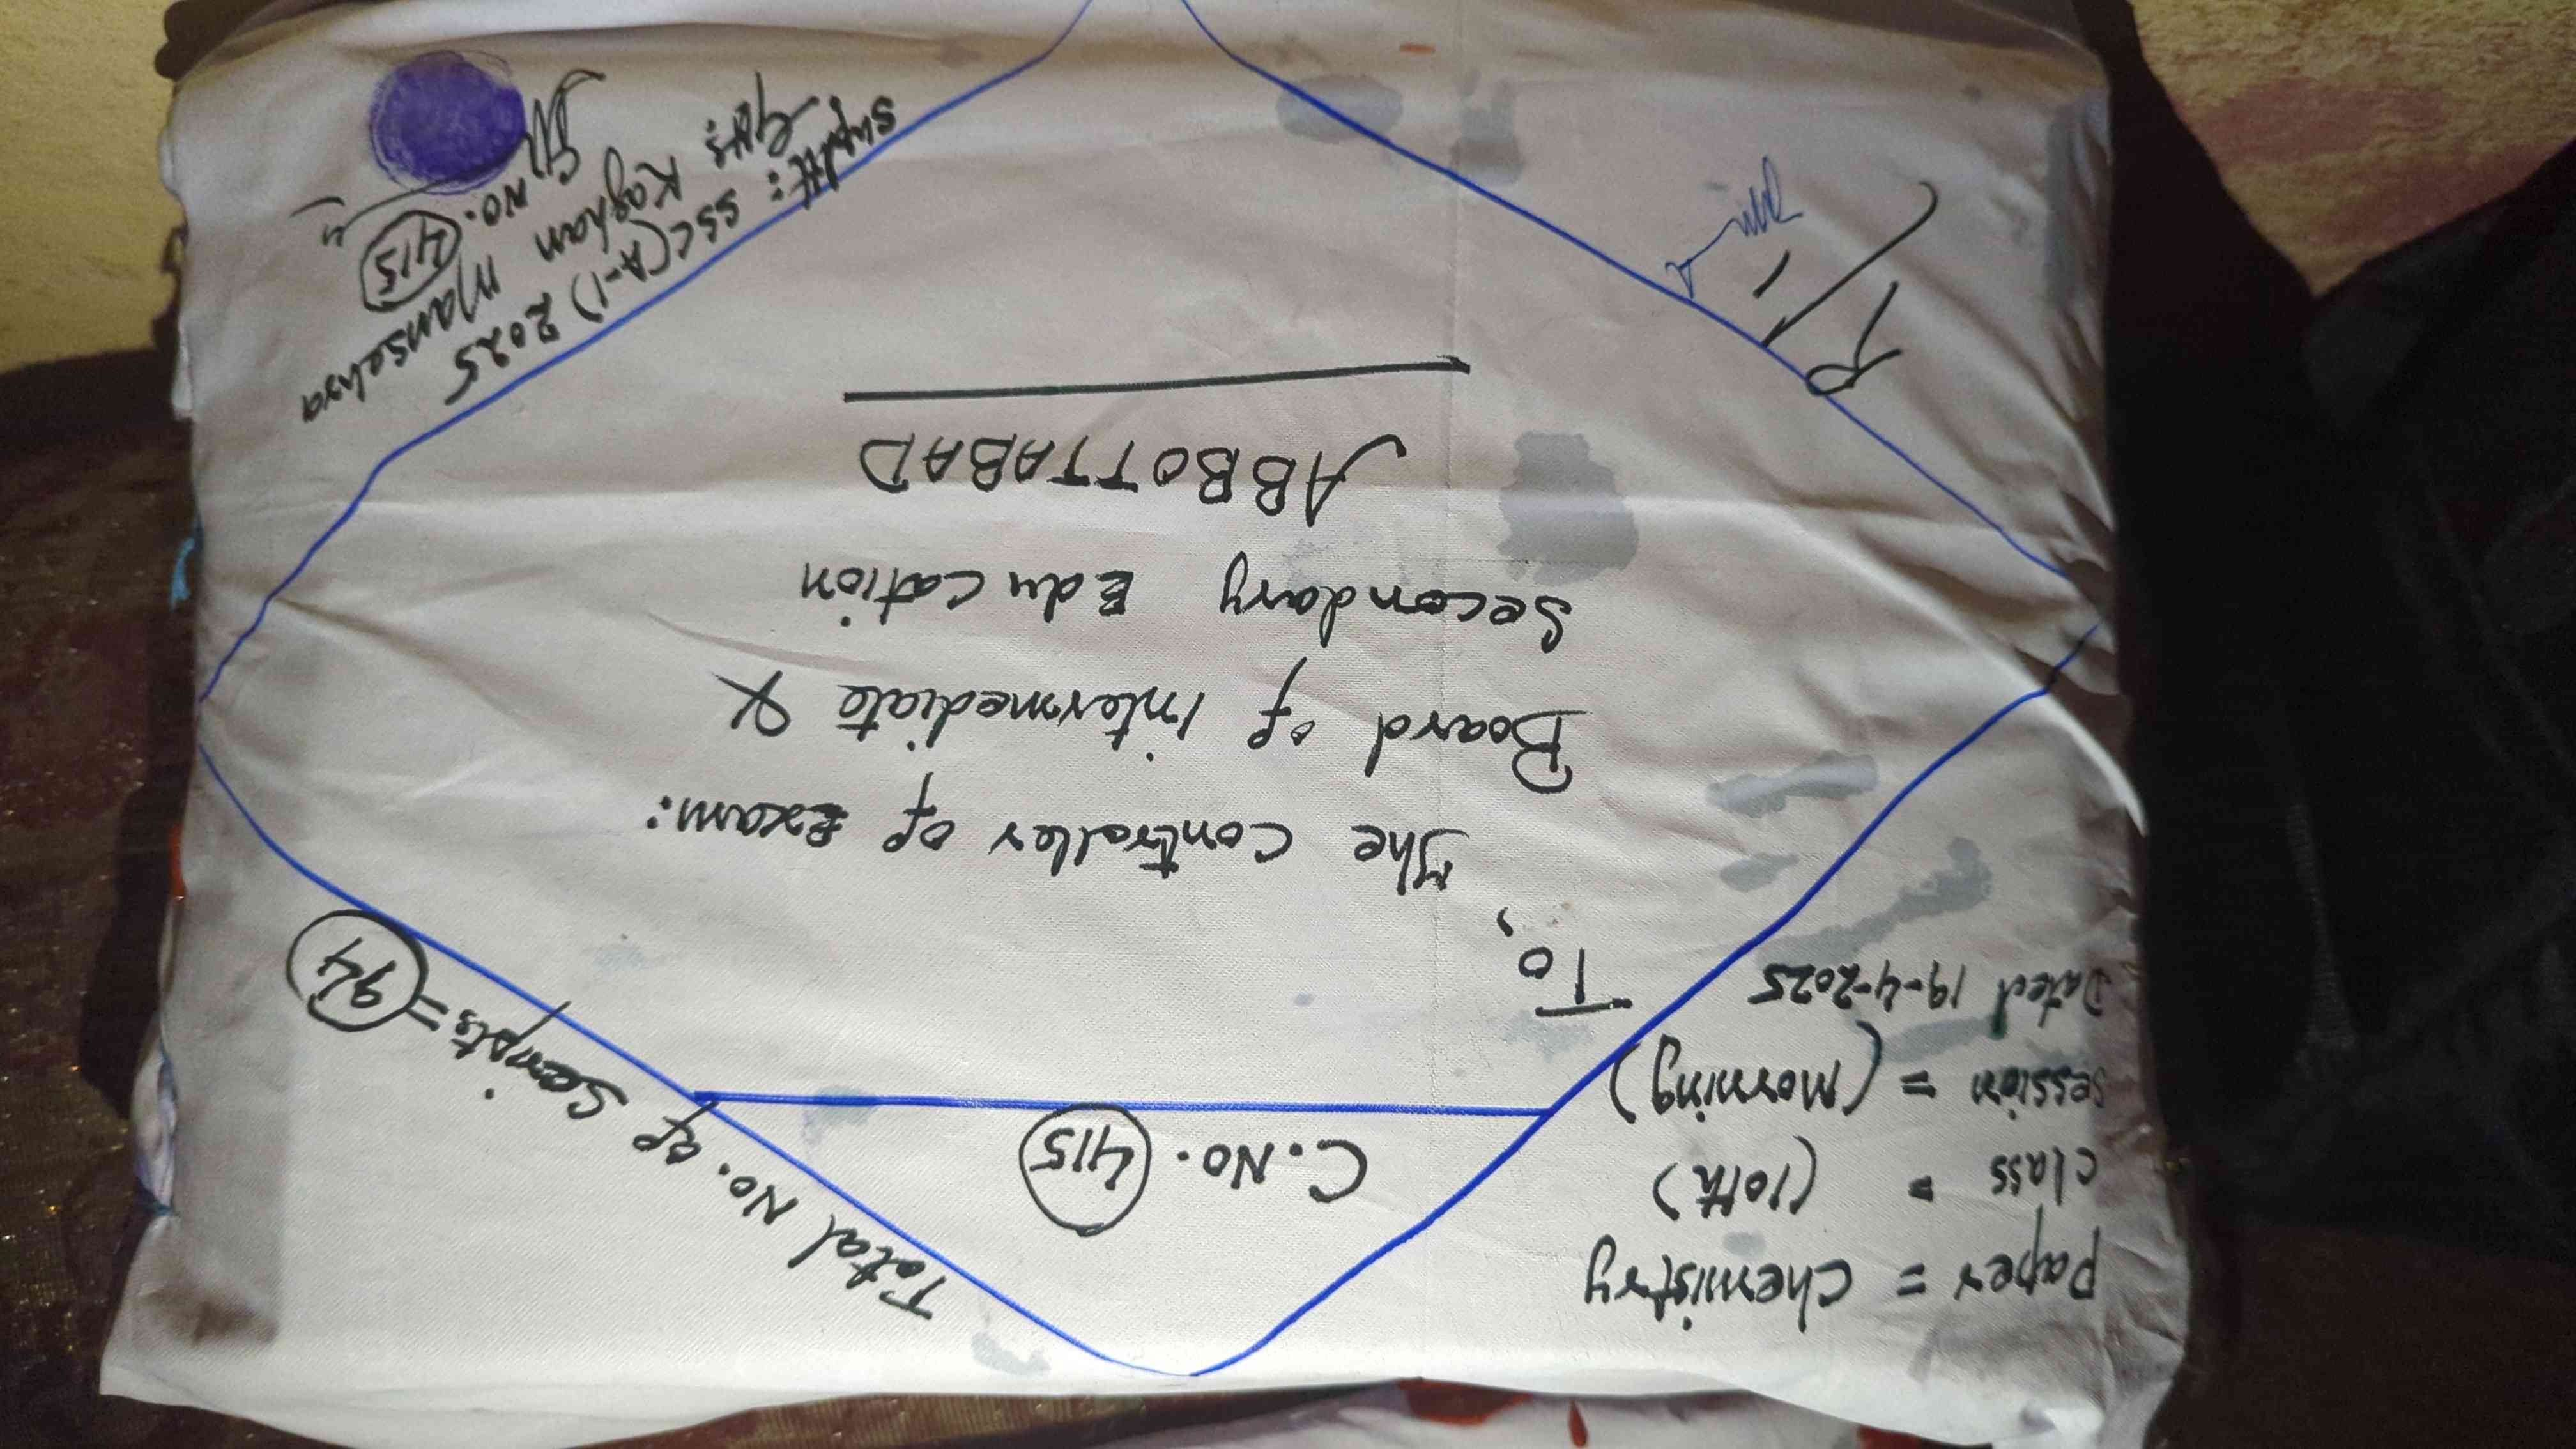 Paper = Chemistry
class = (10th)
session = (Morning)
Dated 19-4-2025
C.No. 415
Total No. of Scripts = 94
To,
The Controller of Exam:
Board of Intermediate &
Secondary Education
ABBOTTABAD
R/L
Supdtt: SSC(A-1) 2025
GHS Kaghan Mansehra
C.No. 415